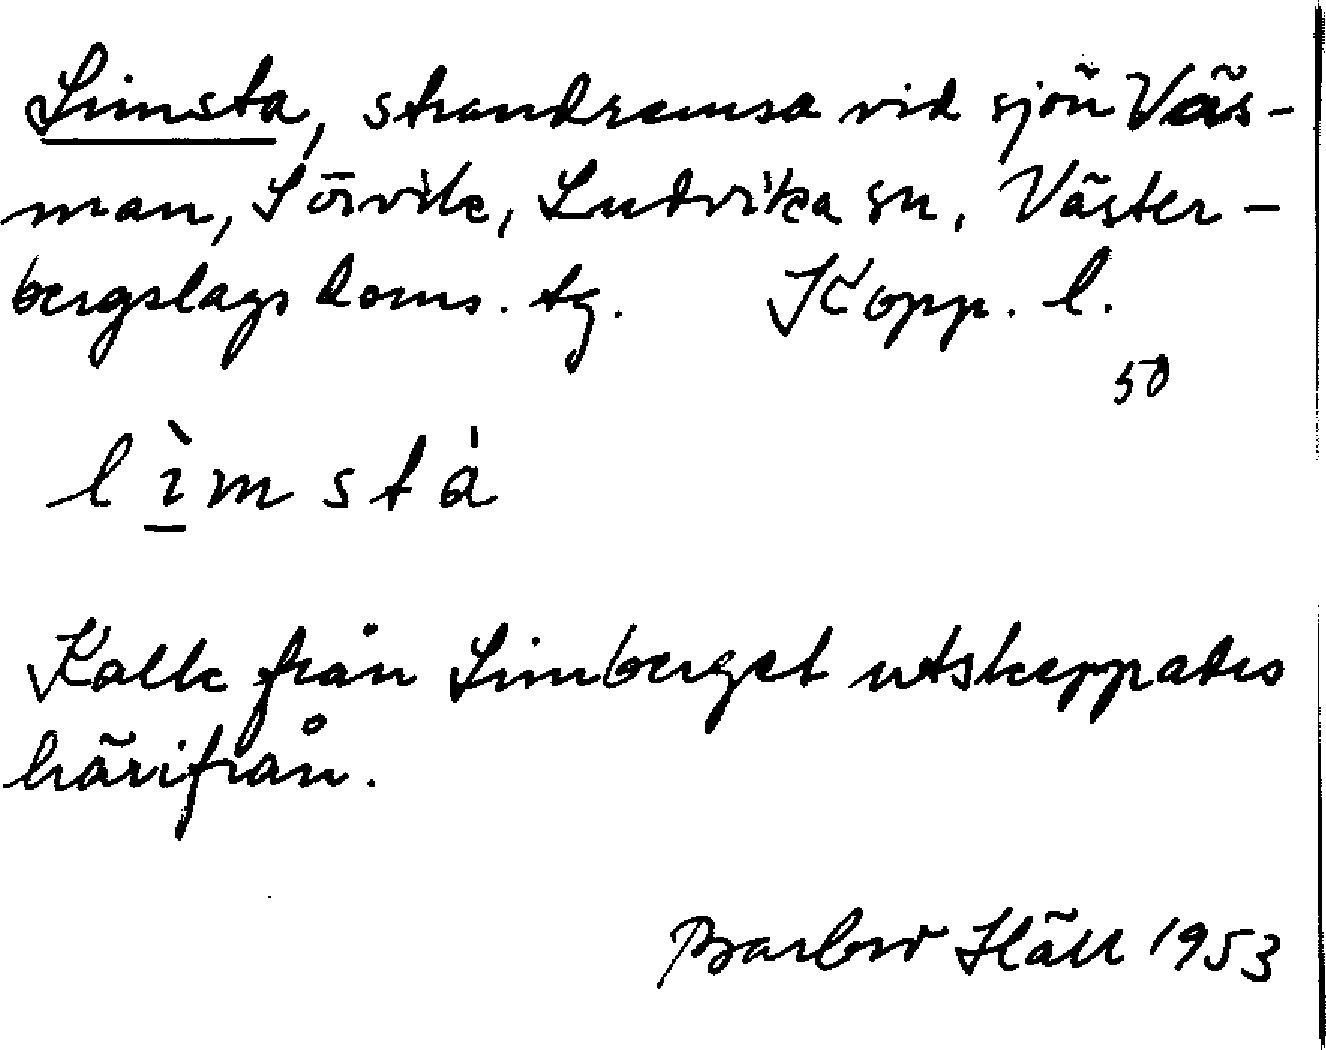 Limsta, strandremsa vid sjön Väs-
man, Sörvik, Ludvika sn, Väster-
bergslags doms. tg. Kopp. l.
50
lìmstá
Kalk från Limberget utskeppades
härifrån.
Barbro Häll 1953